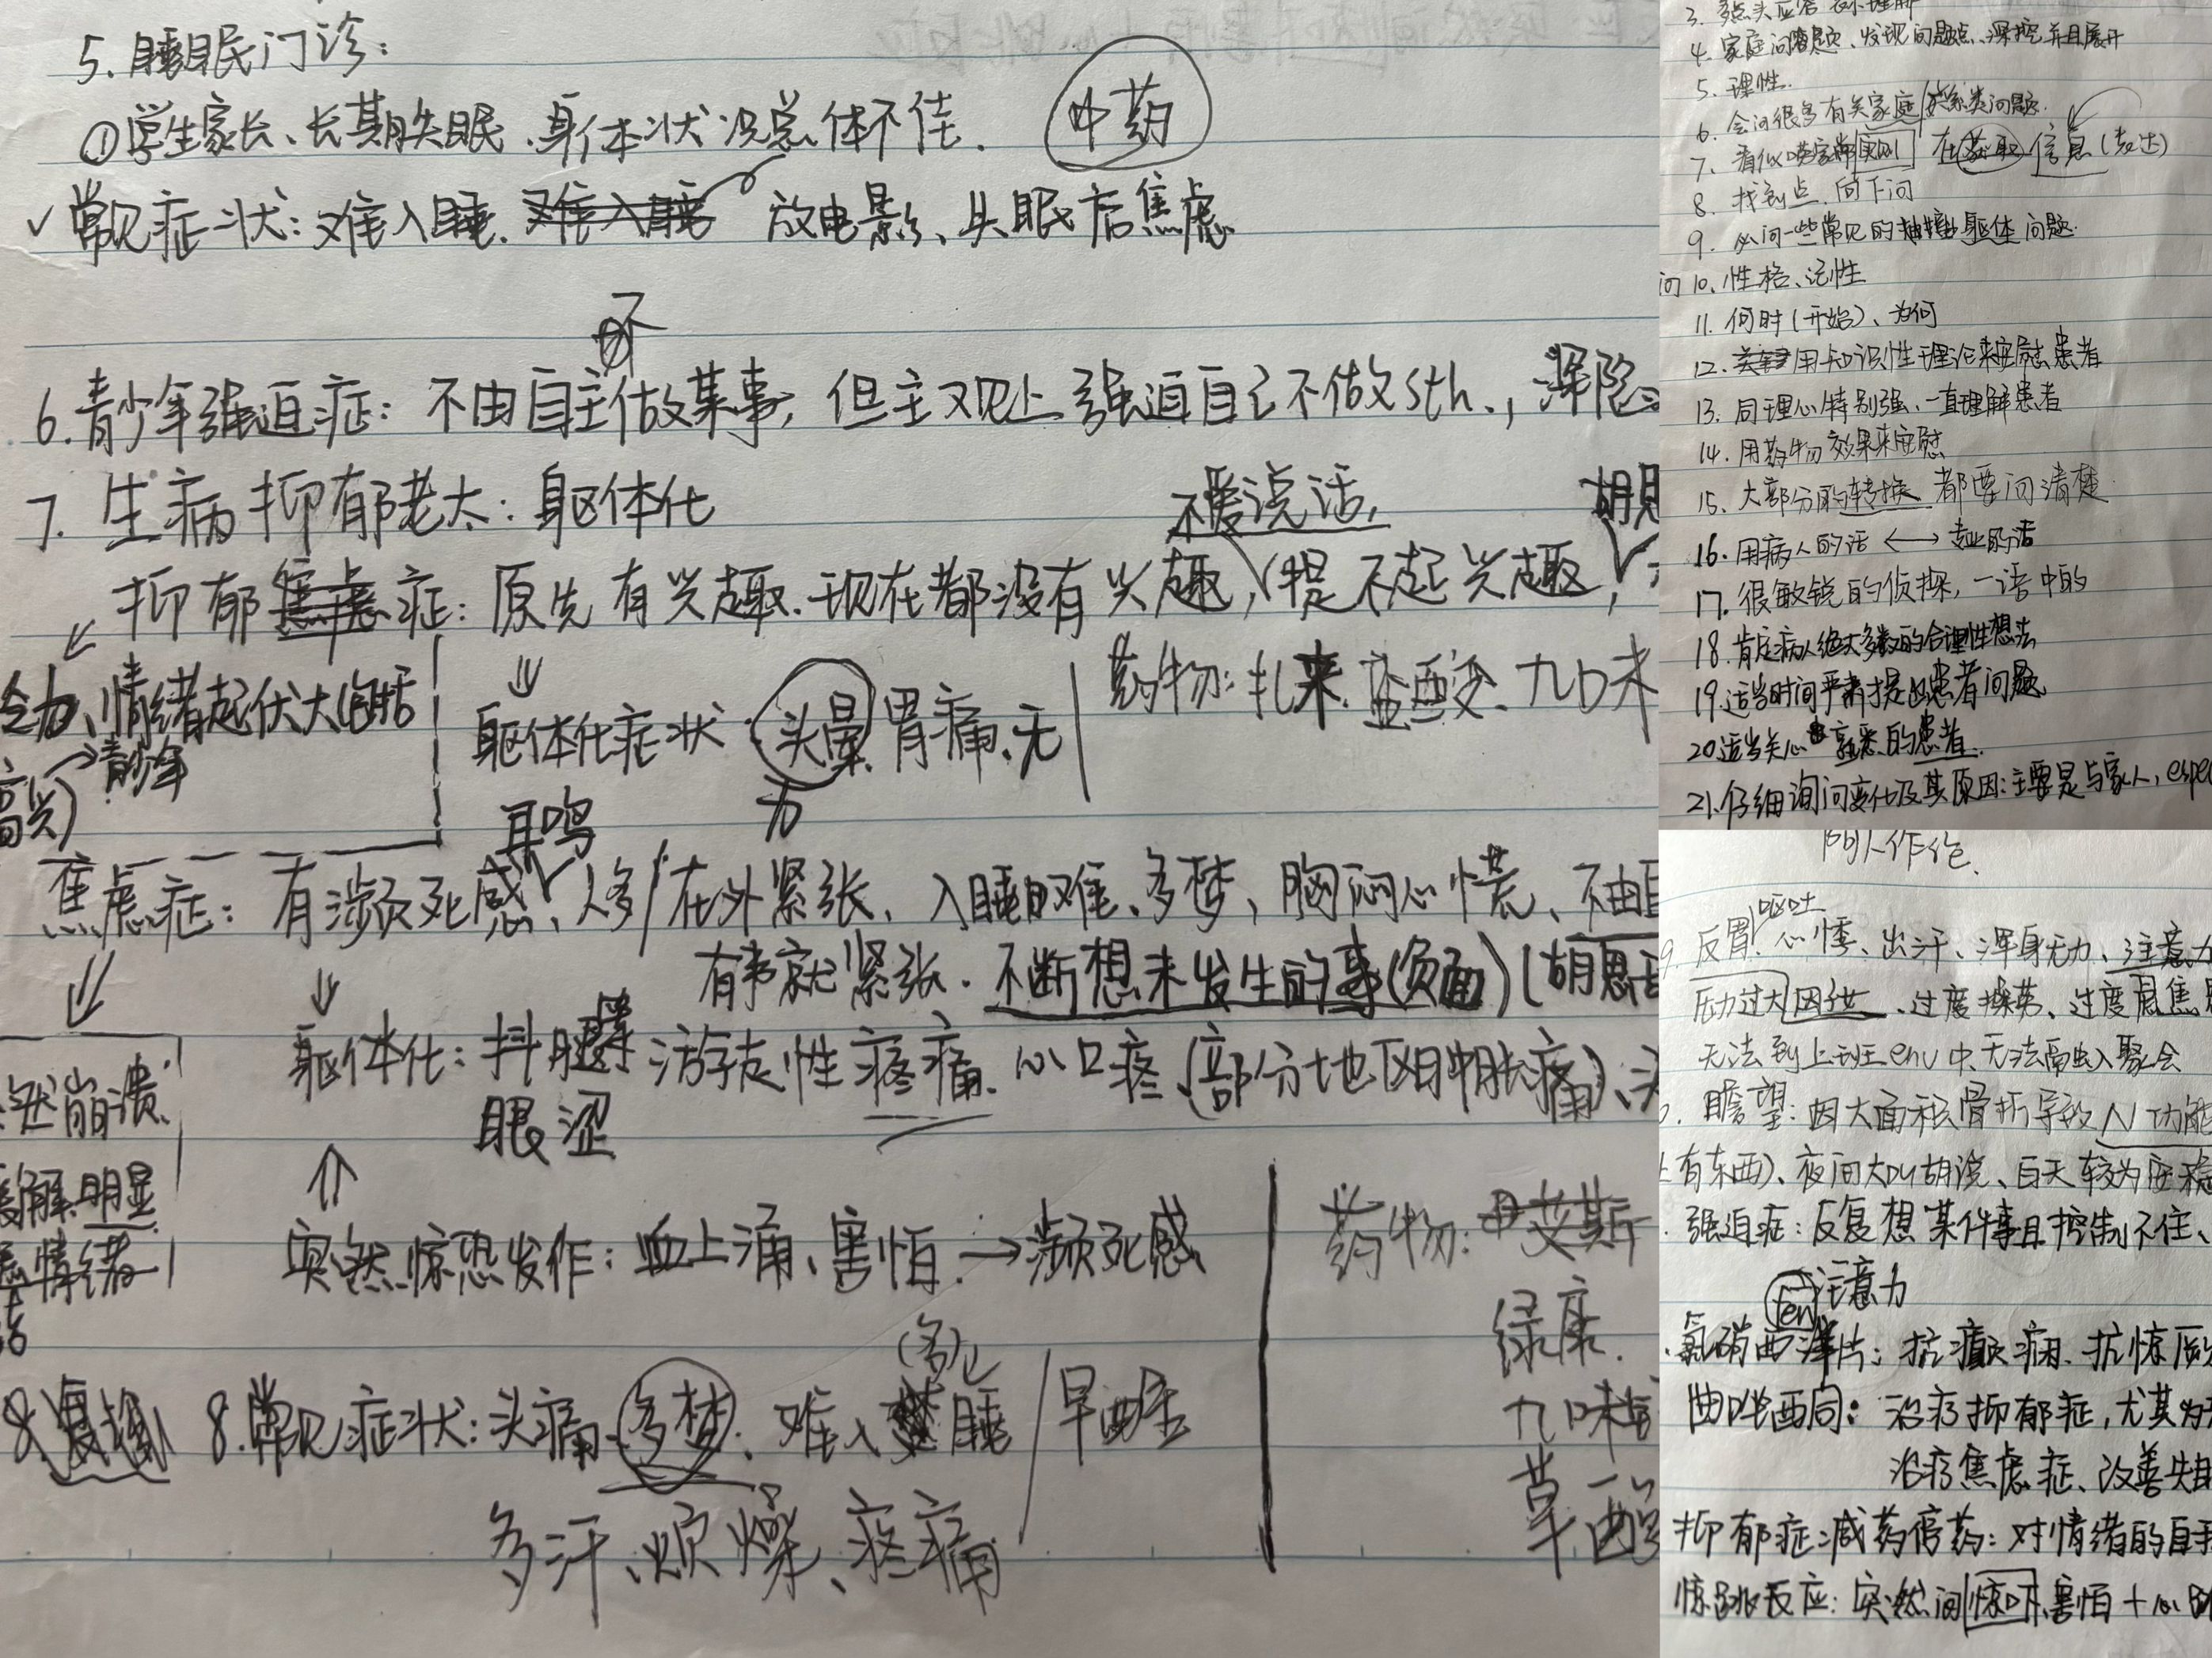 5. 睡眠门诊:
①学生家长、长期失眠、身体状况总体不佳. 中药
✓常见症状: 难入睡. 难入睡 放电影、失眠后焦虑
不
6. 青少年强迫症: 不由自主做某事, 但主观上强迫自己不做sth.,
7. 生病抑郁老太: 躯体化
不爱说话,
抑郁焦虑症: 原先有兴趣.现在都没有兴趣, (提不起兴趣,
情绪起伏大
→青少年
高兴)
躯体化症状: 头晕、胃痛、无力
耳鸣
药物: 扎来. 盐酸. 九味
焦虑症: 有濒死感、人多/在外紧张、入睡困难、多梦, 胸闷心慌、不由自
有事就紧张. 不断想未发生的事(负面) (胡思
躯体化: 抖腿 游走性疼痛. 心口疼(部分地区胀痛)、
眼涩
然崩溃.
缓解.明显
情绪
突然惊恐发作: 血上涌、害怕. →濒死感
药物:
绿康.
九味
草酸
(多)
8. 常见症状: 头痛、多梦、难入睡/早醒
多汗、烦燥、疼痛
4. 家庭问题、发现问题点、深挖并且展开
5. 理性.
6. 会问很多有关家庭/关系类问题.
7. 看似唠家常实则 在获取信息(表达)
8. 找到点.向下问
9. 必问一些常见的抽搐躯体问题.
问10. 性格、记性
11. 何时(开始)、为何
12. 用知识性理论来安慰患者
13. 同理心特别强、一直理解患者
14. 用药物效果来安慰
15. 大部分的转换 都要问清楚
16. 用病人的话 ⟷ 专业的话
17. 很敏锐的侦探, 一语中的
18. 肯定病人绝大多数的合理性想法
19. 适当时间严肃提出患者问题
20. 适当关心 的患者.
21. 仔细询问变化及其原因: 主要是与家人, espe
呕吐
9. 反胃、心悸、出汗、浑身无力、注意力
压力过大因此、过度操劳、过度焦
无法到上班env中、无法融入聚会
谵望: 因大面积骨折导致N功能
上有东西)、夜间大叫胡说、白天较为安稳
强迫症: 反复想某件事且控制不住、
fen 注意力
氯硝西泮片: 抗癫痫. 抗惊厥
曲唑西同: 治疗抑郁症, 尤其为
治疗焦虑症、改善失眠
抑郁症减药停药: 对情绪的自我
惊跳反应: 突然间惊吓.害怕+心